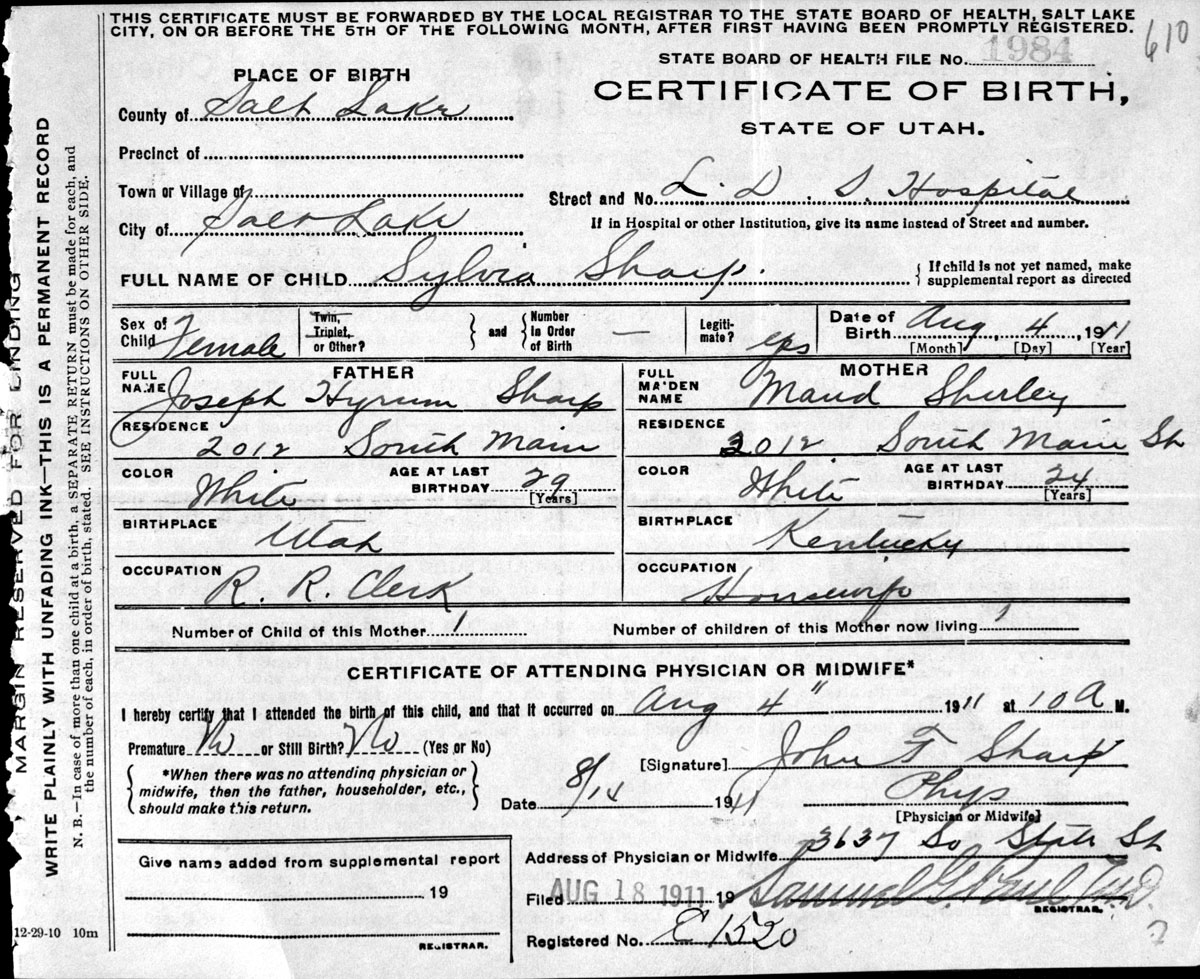 THIS CERTIFICATE MUST BE FORWARDED BY THE LOCAL REGISTRAR TO THE STATE BOARD OF HEALTH, SALT LAKE
CITY, ON OR BEFORE THE 5TH OF THE FOLLOWING MONTH, AFTER FIRST HAVING BEEN PROMPTLY REGISTERED.
610
STATE BOARD OF HEALTH FILE No. 1984
PLACE OF BIRTH
CERTIFICATE OF BIRTH,
STATE OF UTAH.
County of Salt Lake
Precinct of
Town or Village of
Street and No. L. D. S. Hospital
City of Salt Lake
If in Hospital or other Institution, give its name instead of Street and number.
FULL NAME OF CHILD Sylvia Sharp.
{ If child is not yet named, make
supplemental report as directed
Sex of Child Female
Twin, Triplet, or Other?
} and {
Number in Order of Birth —
Legiti-mate? yes
Date of Birth Aug 4, 1911
[Month] [Day] [Year]
FATHER
FULL NAME Joseph Hyrum Sharp
RESIDENCE
2012 South Main
COLOR White
AGE AT LAST BIRTHDAY 29
[Years]
BIRTHPLACE Utah
OCCUPATION R. R. Clerk
MOTHER
FULL MAIDEN NAME Maud Shurley
RESIDENCE
2012 South Main St
COLOR White
AGE AT LAST BIRTHDAY 24
[Years]
BIRTHPLACE Kentucky
OCCUPATION Housewife
Number of Child of this Mother 1
Number of children of this Mother now living 1
CERTIFICATE OF ATTENDING PHYSICIAN OR MIDWIFE*
I hereby certify that I attended the birth of this child, and that it occurred on Aug 4" 1911 at 10 A M.
Premature No or Still Birth? No (Yes or No)
{ *When there was no attending physician or
midwife, then the father, householder, etc.,
should make this return. }
[Signature] John F Sharp
Date 8/14 1911
Phys
[Physician or Midwife]
Address of Physician or Midwife 3637 So State St
Give name added from supplemental report
19
REGISTRAR.
Filed AUG 18 1911 19 Samuel G. Paul M.D.
REGISTRAR.
Registered No. C 1520
12-29-10 10m
MARGIN RESERVED FOR BINDING
WRITE PLAINLY WITH UNFADING INK—THIS IS A PERMANENT RECORD
N. B.—In case of more than one child at a birth, a SEPARATE RETURN must be made for each, and
the number of each, in order of birth, stated. SEE INSTRUCTIONS ON OTHER SIDE.